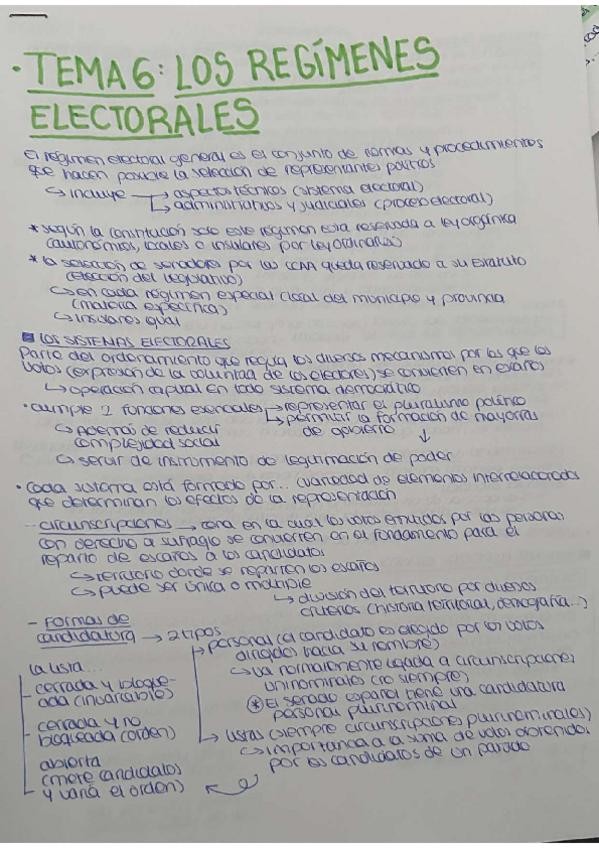 · TEMA 6: LOS REGÍMENES
ELECTORALES
El régimen electoral general es el conjunto de normas y procedimientos
que hacen posible la selección de representantes políticos
↳ incluye → aspectos técnicos (sistema electoral)
↳ administrativos y judiciales (proceso electoral)
* según la constitución solo este régimen esta reservada a ley orgánica
(autonómicos, locales o insulares por ley ordinarias)
* la selección de senadores por las CCAA queda reservado a su Estatuto
(elección del legislativo)
↳ en cada régimen especial local del municipio y provincia
(materia específica)
↳ insulares igual
LOS SISTEMAS ELECTORALES
Parte del ordenamiento que regula los diversos mecanismos por los que los
votos (expresión de la voluntad de los electores) se convierten en escaños
↳ operación capital en todo sistema democrático
· cumple 2 funciones esenciales → representar el pluralismo político
↳ permitir la formación de mayorías
de gobierno ↓
↳ Además de reducir
complejidad social
↳ servir de instrumento de legitimación de poder
· Cada sistema está formado por... (variedad de elementos interrelacionados
que determinan los efectos de la representación
- circunscripciones → zona en la cual los votos emitidos por las personas
con derecho a sufragio se convierten en el fundamento para el
reparto de escaños a los candidatos
↳ territorio donde se reparten los escaños
↳ puede ser única o múltiple
↳ división del territorio por diversos
criterios (historia territorial, demografía...)
- Formas de
candidatura → 2 tipos
→ personal (el candidato es elegido por los votos
dirigidos hacia su nombre)
↳ va normalmente ligada a circunscripciones
uninominales (no siempre)
* El senado español tiene una candidatura
personal plurinominal
↳ listas (siempre circunscripciones plurinominales)
↳ importancia a la suma de votos obtenidos
por los candidatos de un partido
la lista...
- cerrada y bloque-
ada (invariable)
- cerrada y no
bloqueada (orden)
- abierta
(mete candidatos
y varía el orden)